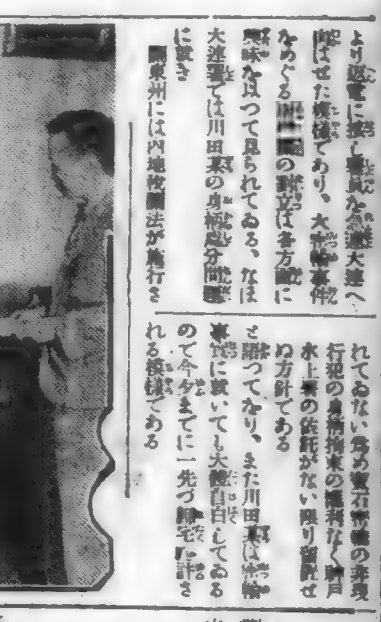 より返電に接し署員を急遽大連へ
向はせた模様であり、大密輸事件
をめぐる の対立は各方面に
興味を以つて見られてゐる、なほ
大連署では川田某の身柄処分問題
に就き
関東州には内地 法が施行さ
れてゐない為め 宝石密輸の非現
行犯の身柄拘束の権利なく神戸
水上署の依託がない限り留置せ
ぬ方針である
と語つてをり、また川田某は密輸
事実に就いても大体自白してゐる
ので今夕までに一先づ帰宅を許さ
れる模様である